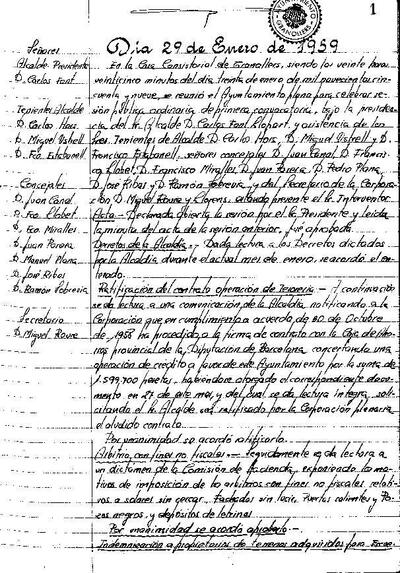 1
AYUNTAMIENTO
GRANOLLERS
Día 29 de Enero de 1959
Señores
Alcalde Presidente
D. Carlos Font
Tenientes Alcalde
D. Carlos Hors
D. Miguel Vstrell
D. Fco. Estabanell
Concejales
D. Juan Canal
D. Fco. Llobet
D. Fco. Miralles
D. Juan Parera
D. Manuel Plana
D. José Ribas
D. Ramón Fabrevia
Secretario
D. Miguel Roure
En la Casa Consistorial de Granollers, siendo las veinte horas
veinticinco minutos del día treinta de enero de mil novecientos cin-
cuenta y nueve, se reunió el Ayuntamiento pleno para celebrar se-
sión pública ordinaria de primera convocatoria, bajo la presiden-
cia del Sr. Alcalde D. Carlos Font Llopart, y asistencia de los
Sres. Tenientes de Alcalde D. Carlos Hors, D. Miguel Vstrell y D.
Francisco Estabanell, señores concejales D. Juan Canal, D. Francis-
co Llobet, D. Francisco Miralles, D. Juan Parera, D. Pedro Plana,
D. José Ribas y D. Ramón Fabrevia, y del Secretario de la Corpora-
ción D. Miguel Roure y Llorens, estando presente el Sr. Interventor
Acta.- Declarada abierta la sesión por el Sr. Presidente y leída
la minuta del acta de la sesión anterior, fué aprobada.
Decretos de la Alcaldía.- Dada lectura a los Decretos dictados
por la Alcaldía durante el actual mes de enero, se acordó el en-
terado.
Ratificación del contrato operación de Tesorería.- A continuación
se da lectura a una comunicación de la Alcaldía, notificando a la
Corporación que en cumplimiento a acuerdo de 30 de Octubre
de 1958 ha procedido a la firma de contrato con la Caja de Aho-
rros provincial de la Diputación de Barcelona, concertando una
operación de crédito a favor de este Ayuntamiento por la suma de
1.599.700 pesetas, habiéndose otorgado el correspondiente docu-
mento en 27 de este mes, y del cual se da lectura íntegra, soli-
citando el Sr. Alcalde sea ratificado por la Corporación plenaria
el aludido contrato.
Por unanimidad se acordó ratificarlo.
Arbitrio con fines no fiscales.- Seguidamente se da lectura a
un dictamen de la Comisión de Hacienda, exponiendo los mo-
tivos de imposición de los arbitrios con fines no fiscales relati-
vos a solares sin cercar, Fachadas sin lucir, Puertas salientes y Po-
zos negros, y depósitos de letrinas.
Por unanimidad se acordó aprobarlo.-
Indemnización a propietarios de terrenos adquiridos para